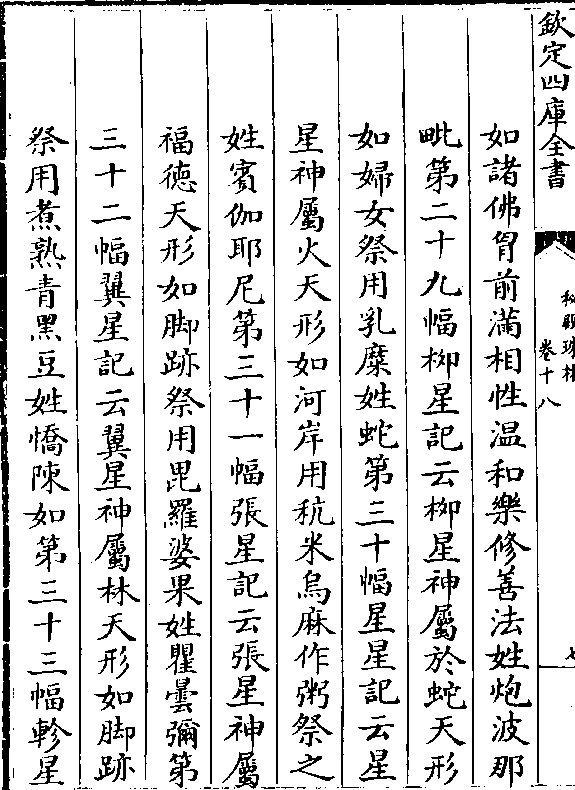 欽定四庫全書
秘殿珠林
卷十八
七
如諸佛胷前滿相性温和樂修善法姓炮波那
毗第二十九幅柳星記云柳星神屬於蛇天形
如婦女祭用乳糜姓蛇第三十幅星星記云星
星神屬火天形如河岸用秔米烏麻作粥祭之
姓賓伽耶尼第三十一幅張星記云張星神屬
福德天形如脚跡祭用毘羅婆果姓瞿曇彌第
三十二幅翼星記云翼星神屬林天形如脚跡
祭用煮熟青黑豆姓憍陳如第三十三幅軫星